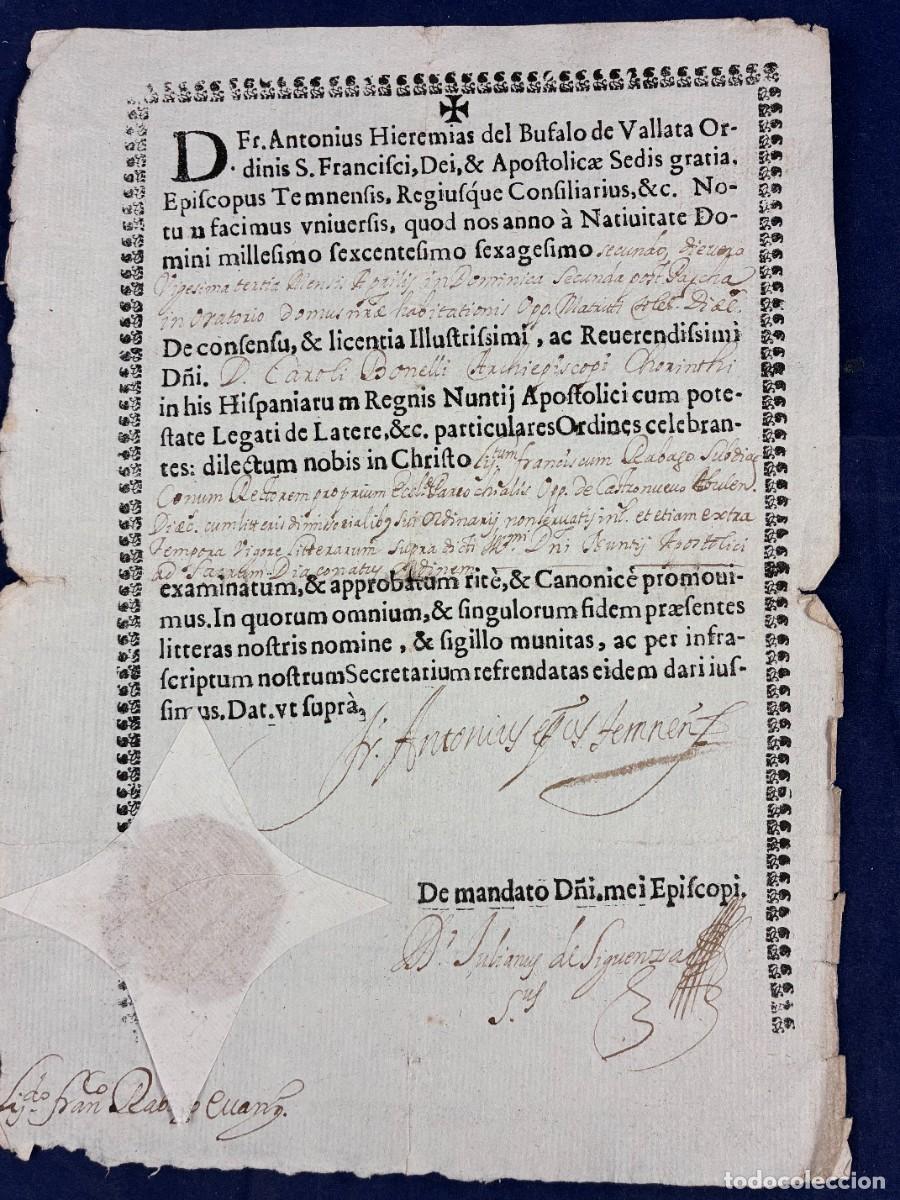 ✠
D Fr. Antonius Hieremias del Bufalo de Vallata Or-
· dinis S. Francisci, Dei, & Apostolicæ Sedis gratia.
Episcopus Temnensis, Regiusq́ue Consiliarius, &c. No-
tu n facimus vniuersis, quod nos anno à Natiuitate Do-
mini millesimo sexcentesimo sexagesimo secundo, die vero
Vigesima tertia Mensis Aprilis in Dominica Secunda post Pascha
in Oratorio Domus nr̃æ habitationis Opp. Matriti Diœc.
De consensu, & licentia Illustrissimi, ac Reuerendissimi
Dñi. D. Caroli Bonelli Archiepiscopi Chorinthi
in his Hispaniaru m Regnis Nuntij Apostolici cum pote-
state Legati de Latere, &c. particulares Ordines celebran-
tes: dilectum nobis in Christo franciscum Rabago Subdia
Conum Rectorem proprium Opp. de
Diœc. cum litteris sui Ordinarij et etiam extra
Tempora Vigore Litterarum supra dicti Dni Nuntij Apostolici
ad Sacrum Diaconatus Ordinem
examinatum, & approbatum ritè, & Canonicè promoui-
mus. In quorum omnium, & singulorum fidem præsentes
litteras nostris nomine, & sigillo munitas, ac per infra-
scriptum nostrum Secretarium refrendatas eidem dari ius-
simus. Dat. vt suprà,
fr. Antonius ep̃us Temneñ
De mandato Dñi. mei Episcopi.
Dr. Julianus de Siguenza
S.us
Franco Rabago Evang.
todocoleccion